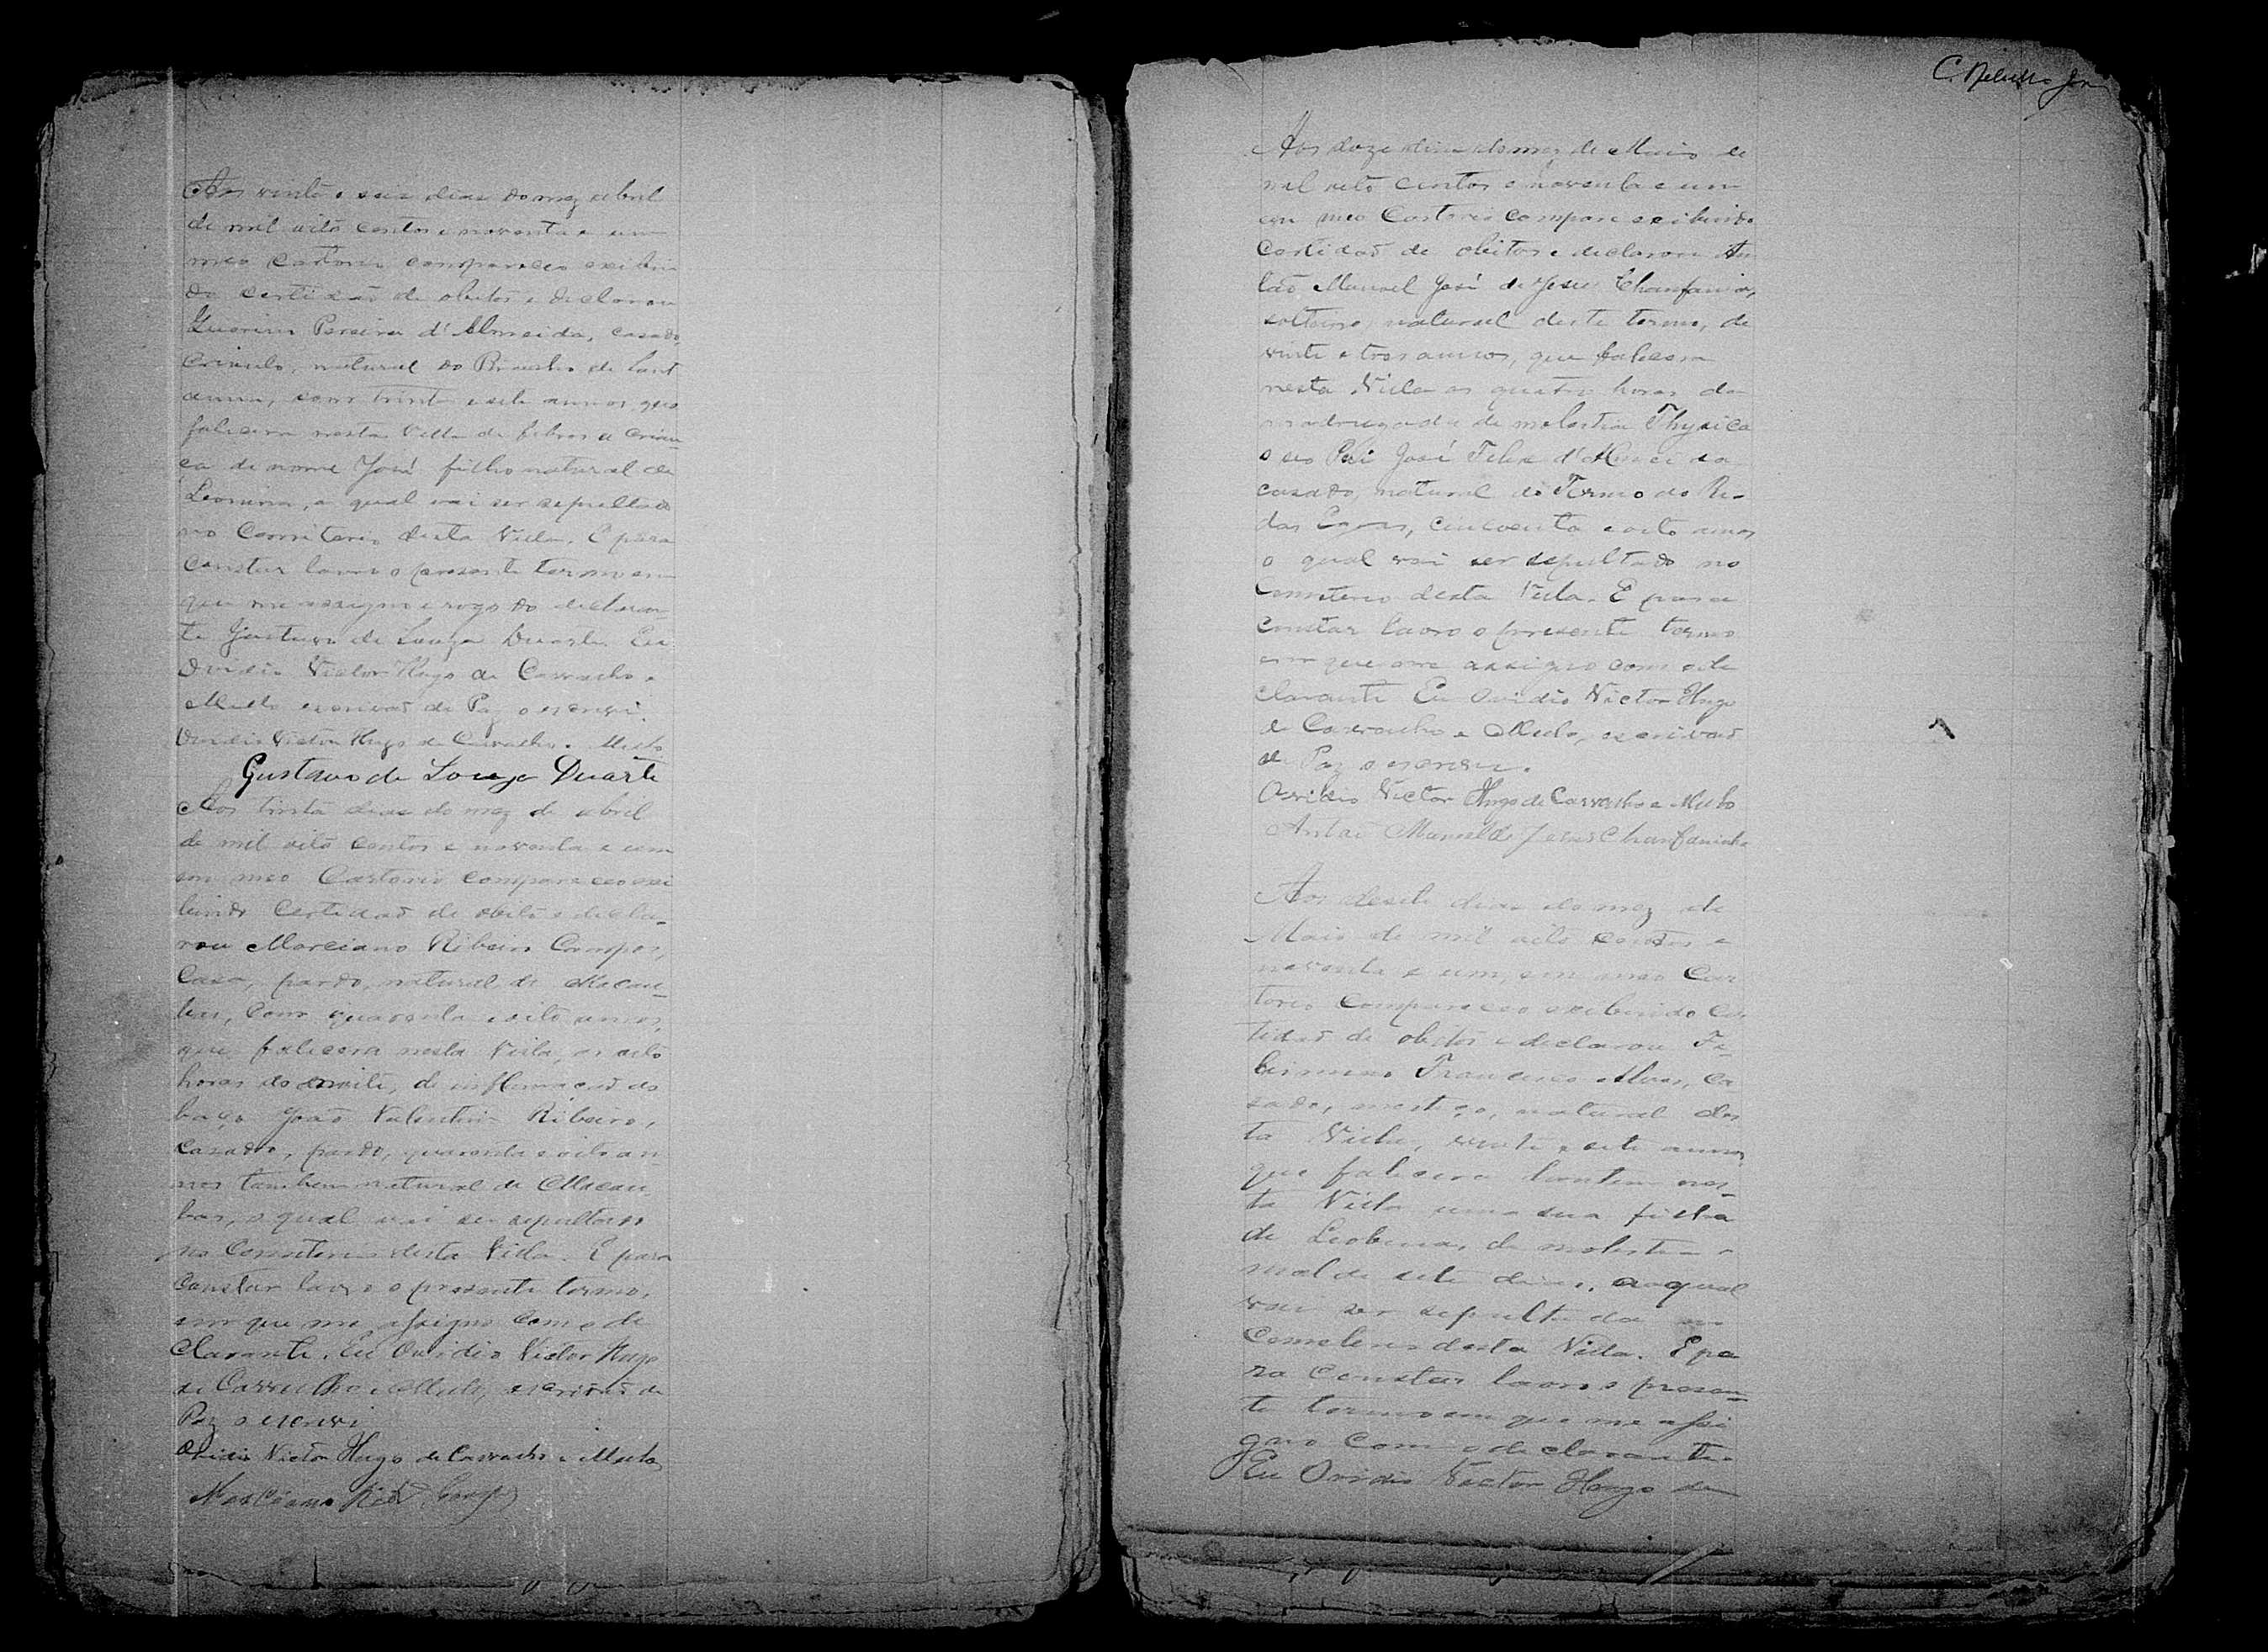 Aos vinte e seis dias do mez abril
de mil oito centos e noventa e um
meo cartorio compareceo exibin
do certidaõ de obitos e declarou
Pereira d'Almeida, casado,
Crioulo, natural do Riacho de Sant
anna, com trinta e sete annos que
falecera nesta Villa de febres a crian
ca de nome José filho natural de
Leonina, a qual vai ser sepultado
no Cemiterio desta Villa. E para
constar lavro o presente termo em
que me assigno e rogo do declaran
te Gustavo de Souza Duarte. Eu
Ovidio Victor Hugo de Carvalho e
Mello escrivaõ de Paz o escrevi.
Ovidio Victor Hugo de Carvalho e Mello
Gustavo de Souza Duarte
Aos trinta dias do mez de abril
de mil oito centos e noventa e um
em meo Cartorio compareceo exi
bindo certidaõ de obito e decla-
rou Marciano Ribeiro Campos,
casa, pardo, natural de Macau-
bas, com quarenta e oito annos,
que falecera nesta Villa, as oito
horas da noite, de inflamacaõ do
baço João Valentim Ribeiro,
casado, pardo, quarenta e oito an
nos tambem natural de Macau
bas, o qual vai ser sepultado
no Cemiterio desta Villa. E para
constar lavro o presente termo,
em que me assigno com o de
clarante. Eu Ovidio Victor Hugo
de Carvalho e Mello, escrivaõ de
Paz o escrevi
Ovidio Victor Hugo de Carvalho e Mello
Marciano Ribº Campos
Aos doze dias do mez de Maio de
mil oito centos e noventa e um
em meo Cartorio compare exibindo
certidaõ de obitos e declarou An
taõ Manoel José de Jesus Chanfaninha,
solteiro, natural deste termo, de
vinte e tres annos, que falecera
nesta Villa as quatro horas da
madrugada de molestia Thysica
o seo Pai José Felix
casado, natural do Termo do
cincoenta e oito annos
o qual vai ser sepultado no
Cemiterio desta Villa. E para
constar lavro o presente termo
em que me assigno com o de
clarante Eu Ovidio Victor Hugo
de Carvalho e Mello, escrivaõ
de Paz o escrevi.
Ovidio Victor Hugo de Carvalho e Mello
Antaõ Manoel de Jesus Chanfaninha
Aos desete dias do mez de
Maio de mil oito centos e
noventa e um, em meo Car
torio compareceo exibindo cer
tidaõ de obitos e declarou
Francisco Alves, ca
sado, mestiço, natural des
ta Villa, vinte e sete annos,
que falecera hontem nes-
ta Villa uma sua filha
de Leobina, de molestia o
mal de sete dias, a qual
vai ser sepultada no
Cemiterio desta Villa. E pa
ra constar lavro o presen-
te termo em que me assi
gno com o declarante.
Eu Ovidio Victor Hugo de